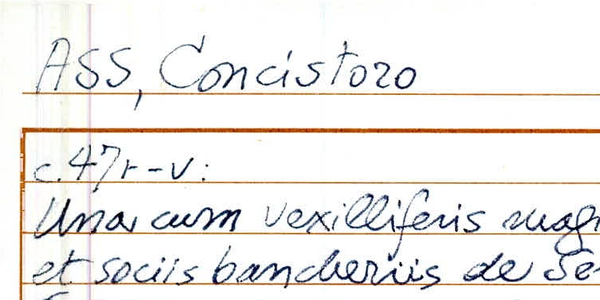 ASS, Concistoro
c. 47r-v:
Una cum vexilliferis mag
et sociis bancheriis de Se